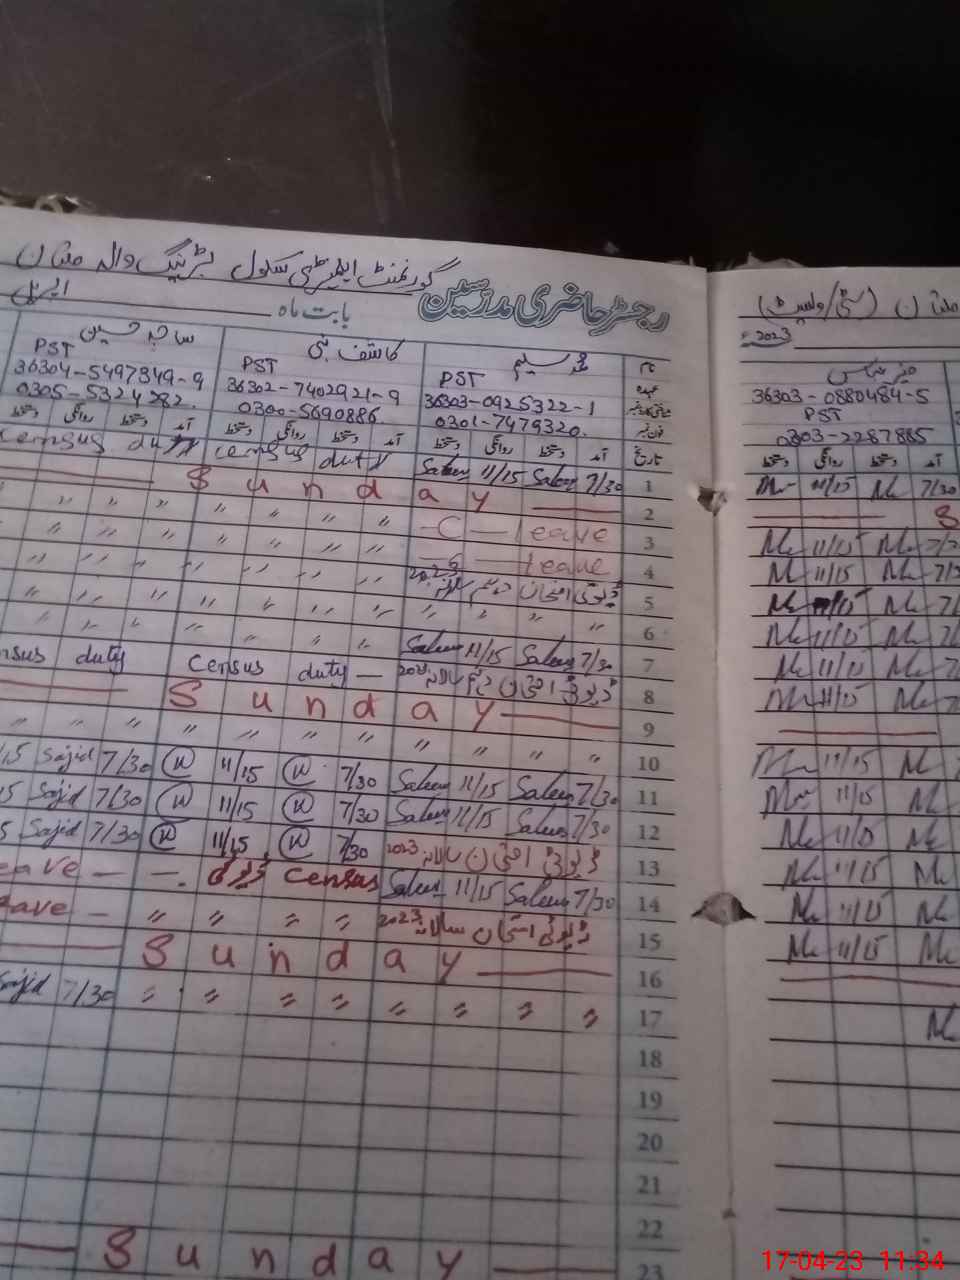 گورنمنٹ ایلیمنٹری سکول بٹرنیگ والہ ملتان
رجسٹر حاضری مدرسین
بابت ماہ اپریل
نام محمد سلیم کاشف ساجد حسین
عہدہ PST PST PST
36303-0925322-1 36302-7402921-9 36304-5497349-9
0301-7479320. 0300-5690886. 0305-5324282.
تاریخ آمد دستخط روانگی دستخط آمد دستخط روانگی دستخط آمد دستخط روانگی دستخط
1 7/30 Saleem 11/15 Saleem census duty census duty
2 Sunday
3 C — leave " " " " " " "
4 C — leave " " " " " " "
5 ڈیوٹی امتحان سالانہ 2023 " " " " " " "
6 " " " " " " " " " "
7 7/30 Saleem 11/15 Saleem " " " " "
8 ڈیوٹی امتحان سالانہ 2023 census duty — census duty
9 Sunday
10 " " " " " " " " " "
11 7/30 Saleem 11/15 Saleem 7/30 11/15 7/30 Sajid
12 7/30 Saleem 11/15 Saleem 7/30 11/15 7/30 Sajid
13 ڈیوٹی امتحان سالانہ 2023 7/30 11/15 7/30 Sajid
14 7/30 Saleem 11/15 Saleem census ڈیوٹی — — eave
15 ڈیوٹی امتحان سالانہ 2023 " " " " — eave
16 Sunday
17 " " " " " " " " 7/30 Sajid
18
19
20
21
22
23 Sunday
ملتان (سٹی/ولیسٹ)
2023ء
36303-0880484-5
PST
0303-2287885
آمد دستخط روانگی دستخط
7/30 11/15
S
11/15
11/15
11/15
11/15
11/15
11/15
11/15
11/15
11/15
11/15
11/15
17-04-23 11:34